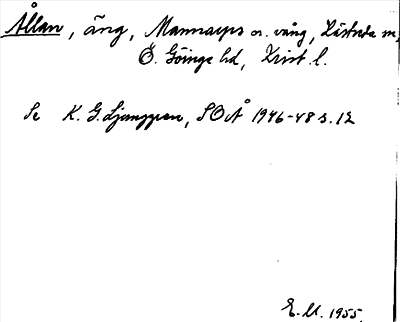 Ållan, äng, Mannarps o. vång, Kästade m,
Ö. Göinge hd, Krist. l.
Se K. G. Ljunggren, SOÅ 1946-48 s. 12
E. M. 1955.